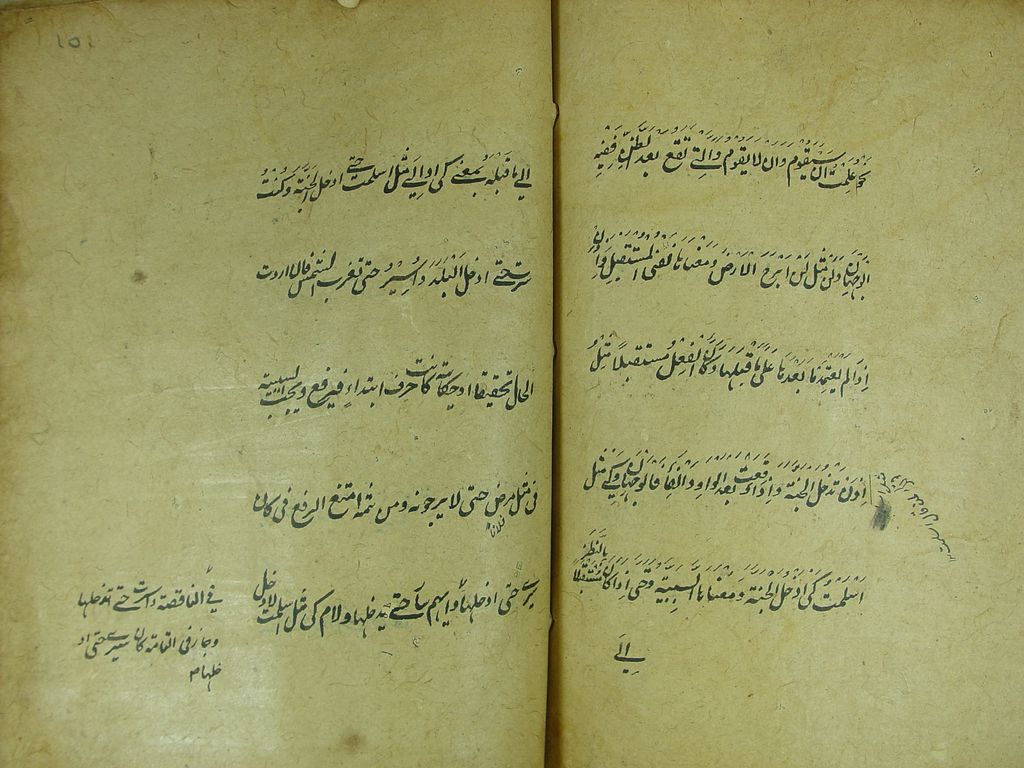 نحو علمت ان سيقوم وان لا يقوم والتي تقع بعد الظن ففيه
الوجهان ولن مثل لن ابرح الارض ومعناها نفي المستقبل واذن
اذا لم يعتمد ما بعدها على ما قبلها وكان الفعل مستقبلا مثل
اذن تدخل الجنة واذا وقعت بعد الواو والفاء فالوجهان وكي مثل
اسلمت كي ادخل الجنة ومعناها السببية وحتى اذا كان مستقبلا
بالنظر
الى
١٥١
الى ما قبله بمعنى كي او الى مثل اسلمت حتى ادخل الجنة وكنت
سرت حتى ادخل البلد واسير حتى تغرب الشمس فان اردت
الحال تحقيقا او حكاية كانت حرف ابتداء فيرفع ويجب السببية
في مثل مرض حتى لا يرجونه ومن ثمه امتنع الرفع في كان
فلانا
سيري حتى ادخلها وايهم سار حتى يدخلها ولام كي مثل اسلمت لادخل
في الناقصة واسرت حتى تدخلها
وجاز في التامة كان سيري حتى اد
خلها